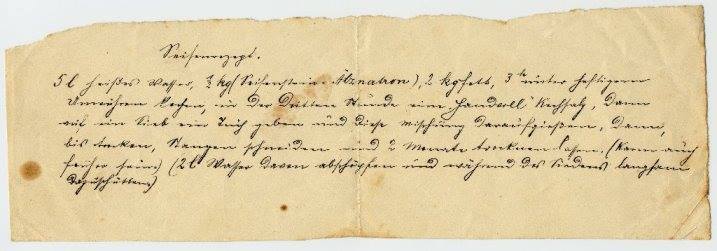 Seifenrezept.
5 l heißes Wasser, kg (Seifenstein = Ätznatron), 2 kg Fett, 3 h unter heftigem
Umrühren kochen, in der dritten Stunde eine Handvoll Kochsalz, dann
auf ein Sieb ein Tuch geben und diese Mischung daraufgießen, dann,
bis trocken, Stangen schneiden und 2 Monate trocknen lassen, (kann auch
früher sein) (2 l Wasser davon abschöpfen und während des Siedens langsam
dazuschütten)